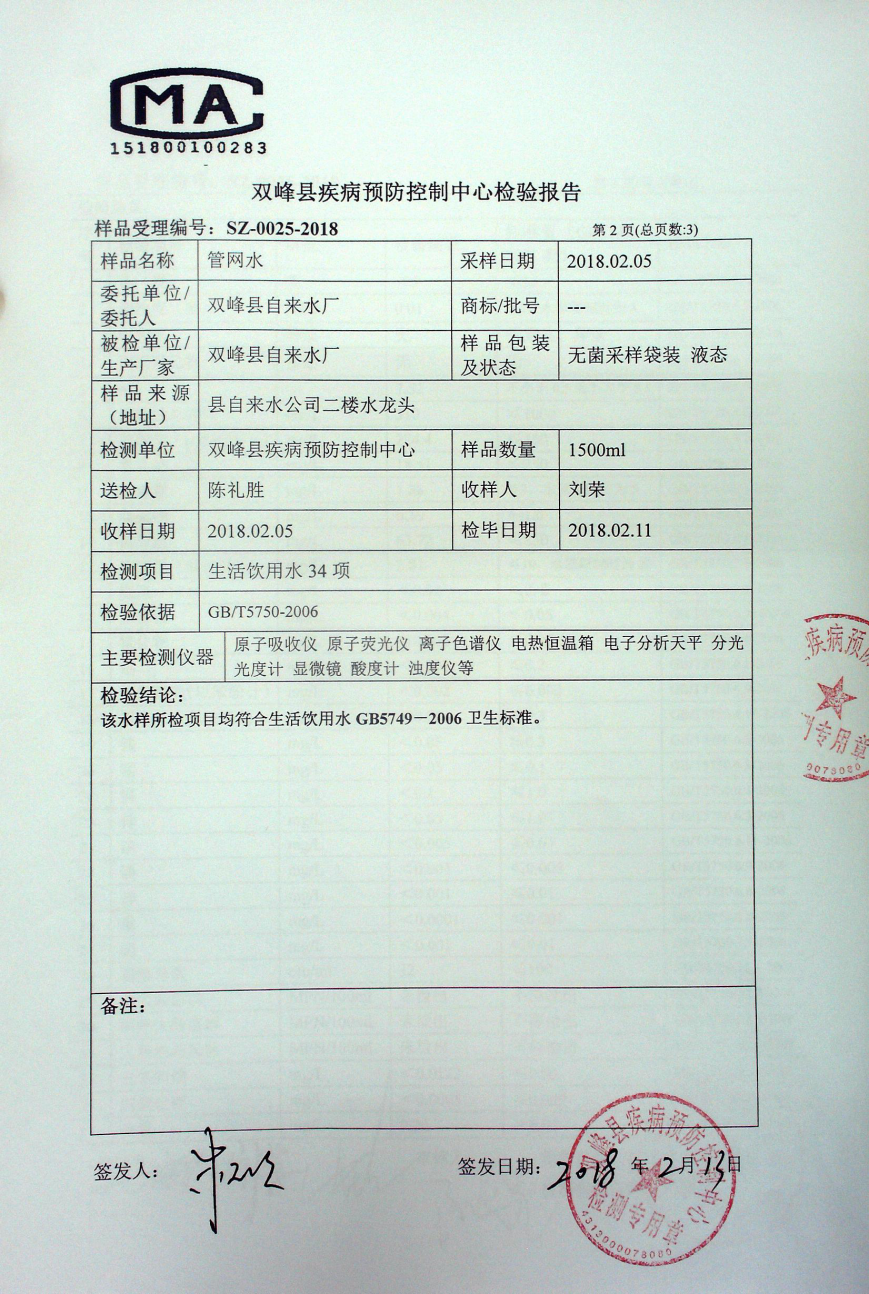 CMA
151800100283
双峰县疾病预防控制中心检验报告
样品受理编号：SZ-0025-2018 第 2 页(总页数:3)
样品名称 管网水 采样日期 2018.02.05
委托单位/
委托人 双峰县自来水厂 商标/批号 ---
被检单位/
生产厂家 双峰县自来水厂 样品包装
及状态 无菌采样袋装 液态
样品来源
（地址） 县自来水公司二楼水龙头
检测单位 双峰县疾病预防控制中心 样品数量 1500ml
送检人 陈礼胜 收样人 刘荣
收样日期 2018.02.05 检毕日期 2018.02.11
检测项目 生活饮用水 34 项
检验依据 GB/T5750-2006
主要检测仪器 原子吸收仪 原子荧光仪 离子色谱仪 电热恒温箱 电子分析天平 分光
光度计 显微镜 酸度计 浊度仪等
检验结论：
该水样所检项目均符合生活饮用水 GB5749－2006 卫生标准。
疾病预防
专用章
0078080
备注：
签发人： 签发日期：2018 年 2月 13日
双峰县疾病预防控制中心
检测专用章
4313000078080